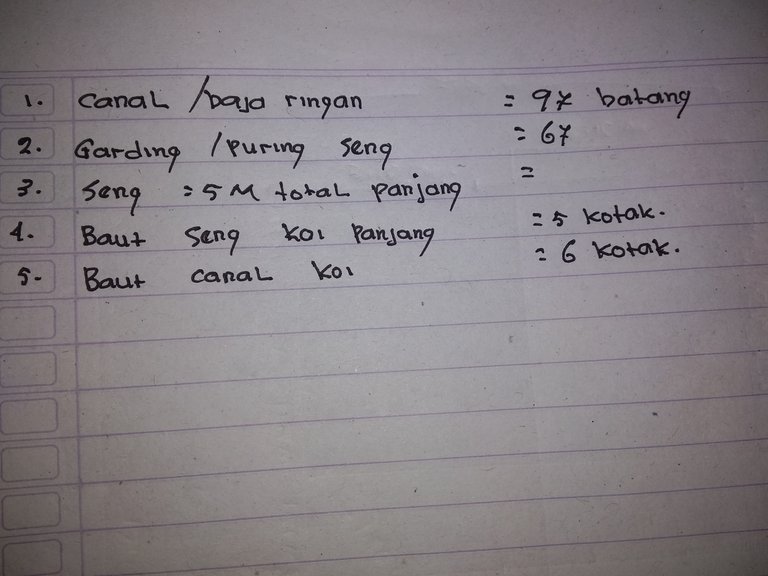 1. Canal /baja ringan = 97 batang
2. Garding /puring seng = 67
3. Seng = 5 M total panjang =
4. Baut seng koi panjang = 5 kotak.
5. Baut canal koi = 6 kotak.